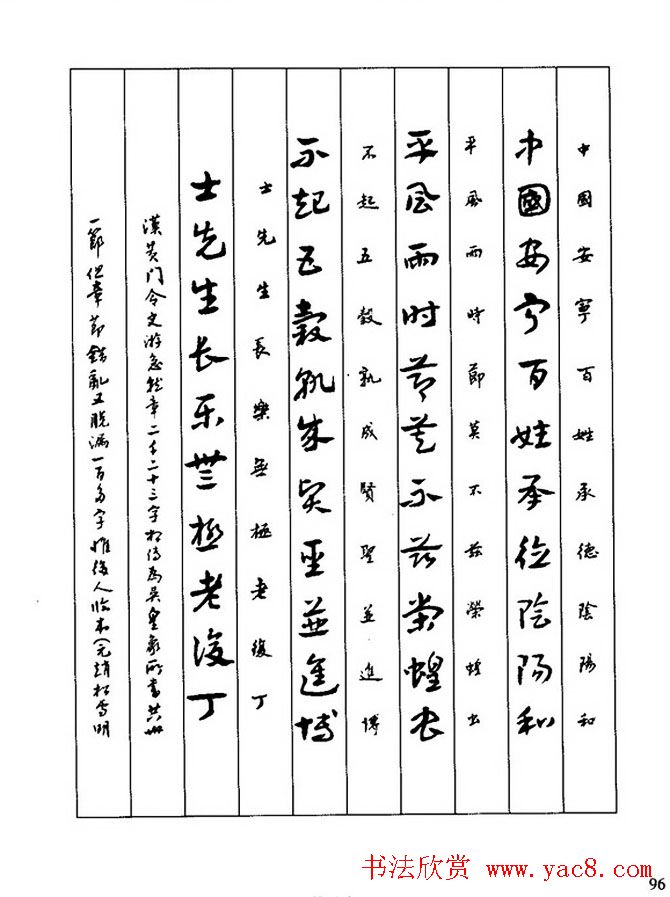 中國安寧百姓承德陰陽和
中國安宁百姓承德陰陽和
平風雨時節莫不茲榮蝗虫
平风雨时节莫不兹荣蝗虫
不起五穀孰成賢聖並進博
不起五穀孰成賢聖並進博
士先生長樂無極老復丁
士先生长乐無極老復丁
漢黄门令史游急就章二千二十三字相传為吴皇象所書共卅
一節但章節錯亂又脱漏一百多字惟後人临本(元趙松雪明
书法欣赏 www.yac8.com
96